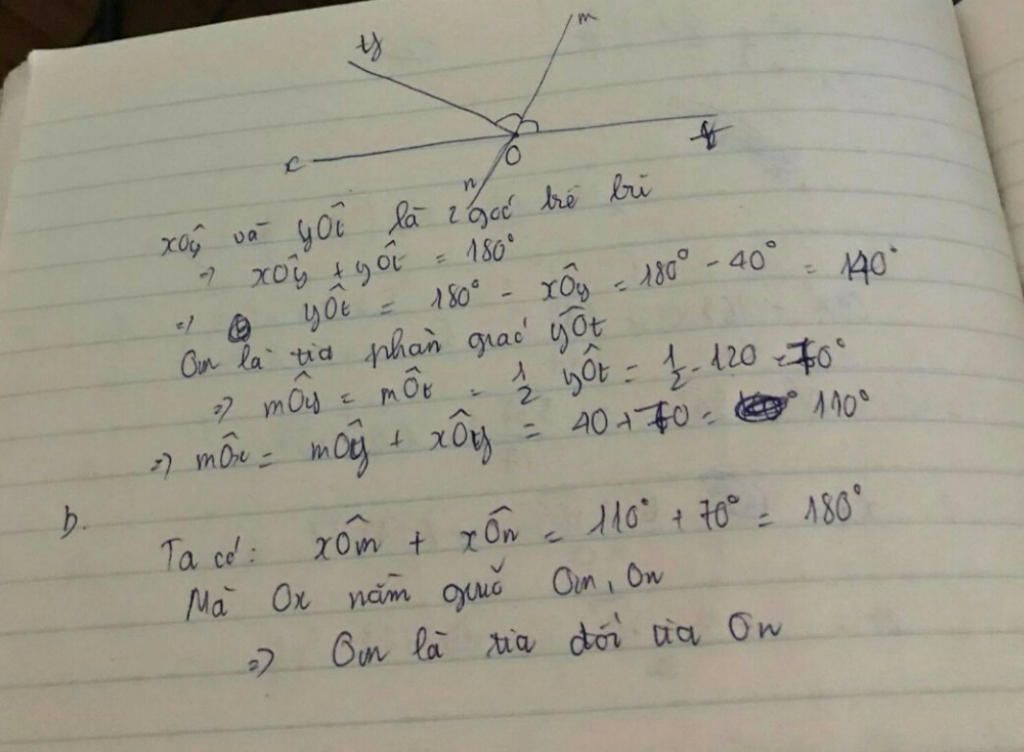 y
m
x
O
t
n
xÔy và yÔt là 2 góc kề bù
=> xÔy + yÔt = 180°
=> yÔt = 180° - xÔy = 180° - 40° = 140°
Om là tia phân giác yÔt
=> mÔy = mÔt = 1/2 yÔt = 1/2 . 120 = 70°
=> mÔx = mÔy + xÔy = 40 + 70 = 110°
b.
Ta có: xÔm + xÔn = 110° + 70° = 180°
Mà Ox nằm giữa Om, On
=> Om là tia đối tia On